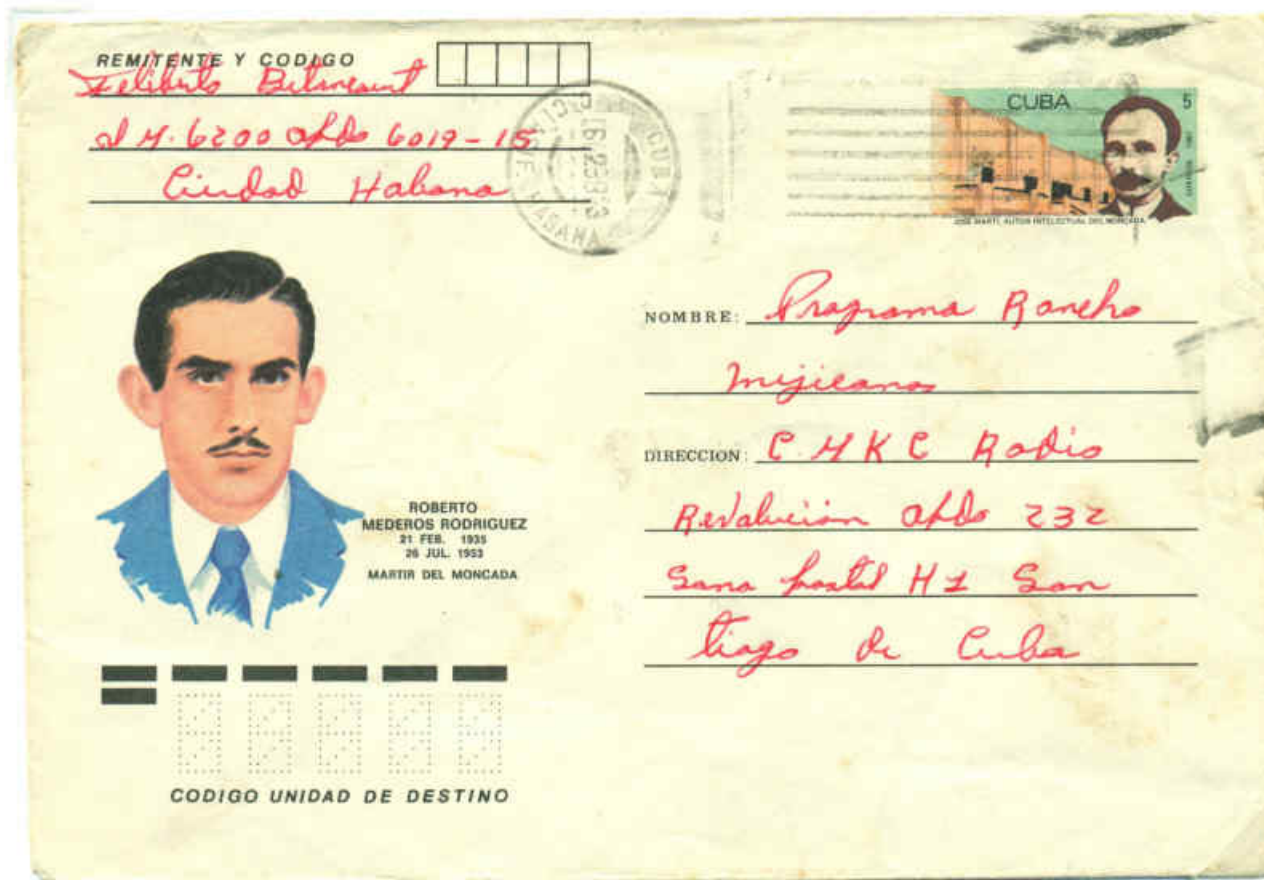 REMITENTE Y CODIGO
Feliberto Betancourt
6200 apdo 6019-15
Ciudad Habana
CUBA
HABANA
CUBA 5
JOSE MARTI, AUTOR INTELECTUAL DEL MONCADA
NOMBRE: Programa Rancho
mejicanos
DIRECCION: C.M K C Radio
Revalución apdo 232
Sona postal H 1 San
tiago de Cuba
ROBERTO
MEDEROS RODRIGUEZ
21 FEB. 1935
26 JUL. 1953
MARTIR DEL MONCADA
CODIGO UNIDAD DE DESTINO